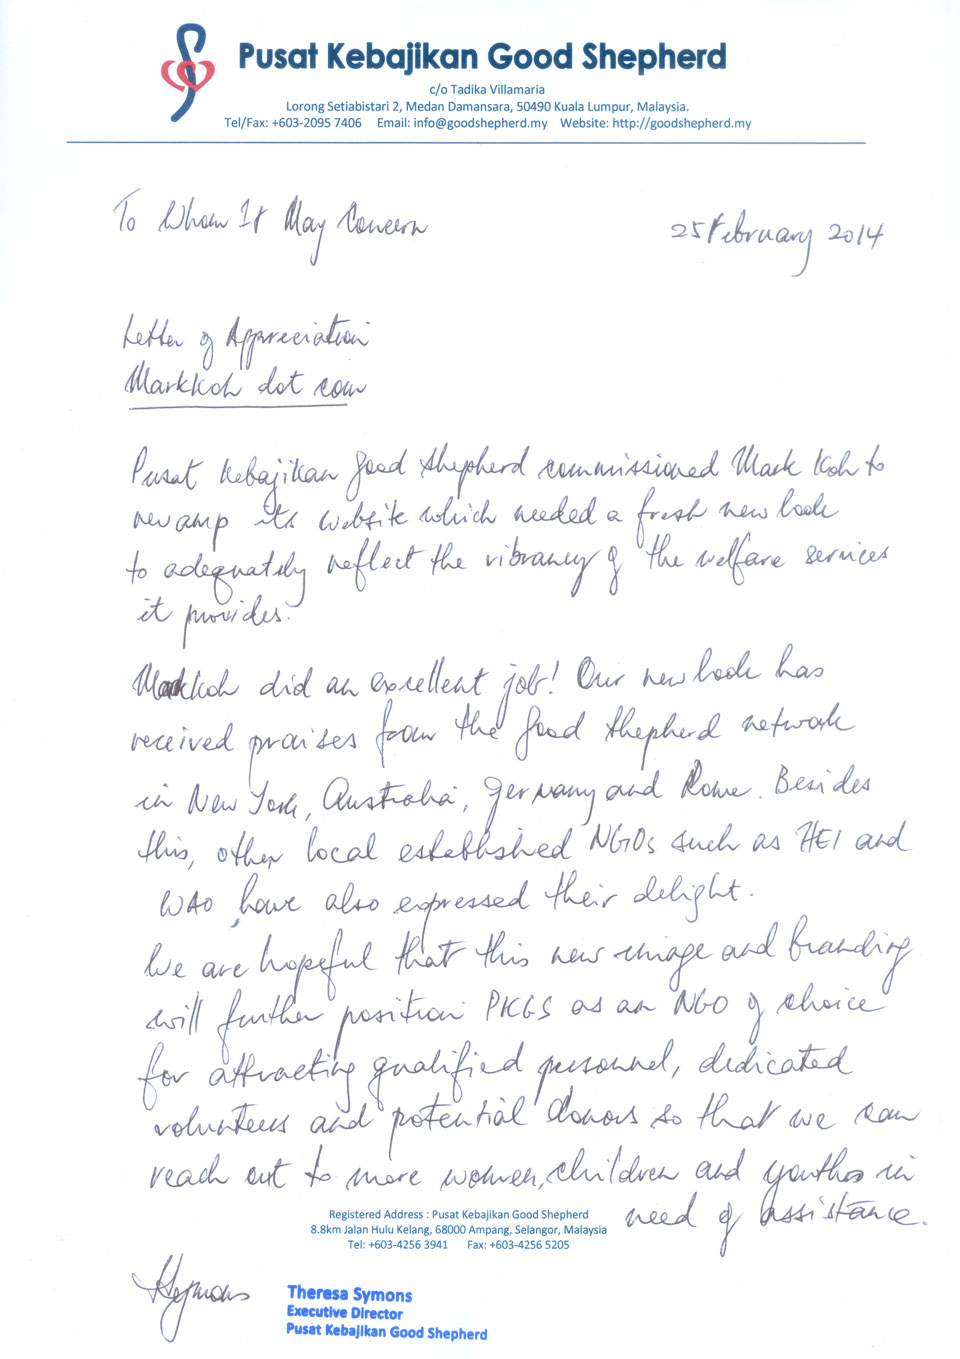 Pusat Kebajikan Good Shepherd
c/o Tadika Villamaria
Lorong Setiabistari 2, Medan Damansara, 50490 Kuala Lumpur, Malaysia.
Tel/Fax: +603-2095 7406 Email: info@goodshepherd.my Website: http://goodshepherd.my
To Whom It May Concern
25 February 2014
Letter of Appreciation
Markkoh dot com
Pusat Kebajikan Good Shepherd commissioned Mark Koh to
revamp its website which needed a fresh new look
to adequately reflect the vibrancy of the welfare services
it provides.
Markkoh did an excellent job! Our new look has
received praises from the Good Shepherd network
in New York, Australia, Germany and Rome. Besides
this, other local established NGOs such as HEI and
WAO have also expressed their delight.
We are hopeful that this new image and branding
will further position PKGS as an NGO of choice
for attracting qualified personnel, dedicated
volunteers and potential donors so that we can
reach out to more women, children and youths in
need of assistance.
Registered Address : Pusat Kebajikan Good Shepherd
8.8km Jalan Hulu Kelang, 68000 Ampang, Selangor, Malaysia
Tel: +603-4256 3941 Fax: +603-4256 5205
Symons
Theresa Symons
Executive Director
Pusat Kebajikan Good Shepherd